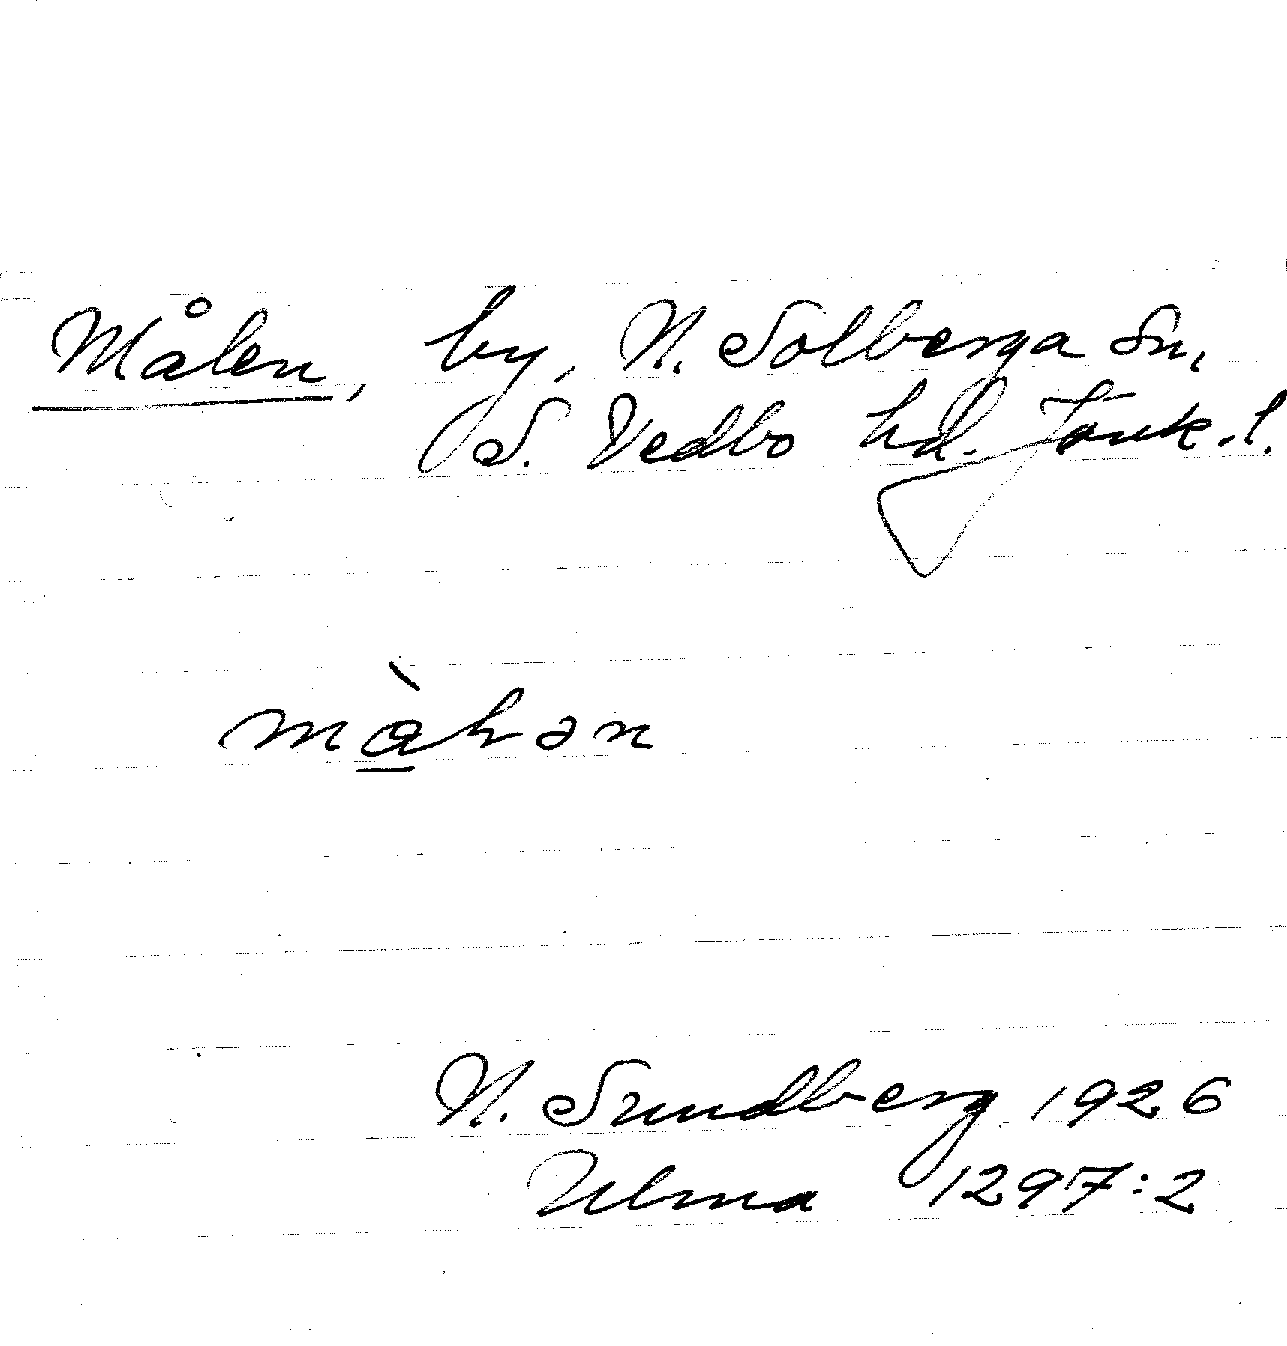 Målen, by, N. Solberga sn,
S. Vedbo hd. Jönk. l.
må̀lən
N. Sundberg 1926
Ulma 1297:2